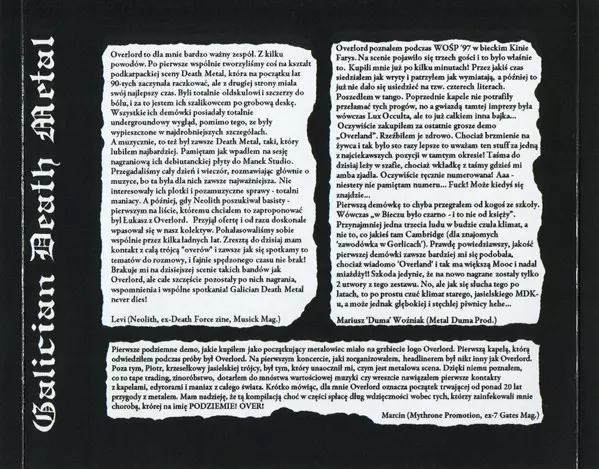 Galician Death Metal
Overlord to dla mnie bardzo ważny zespół. Z kilku
powodów. Po pierwsze wspólnie tworzyliśmy coś na kształt
podkarpackiej sceny Death Metal, która na początku lat
90-tych zaczynała raczkować, ale z drugiej strony miała
swój najlepszy czas. Byli totalnie oldskulowi i szczerzy do
bólu, i za to jestem ich szalikowcem po grobową deskę.
Wszystkie ich demówki posiadały totalnie
undergroundowy wygląd, pomimo tego, ze były
wypieszczone w najdrobniejszych szczegółach.
A muzycznie, to też był zawsze Death Metal, taki, który
lubiłem najbardziej. Pamiętam jak wpadłem na sesję
nagraniową ich debiutanckiej płyty do Manek Studio.
Przegadaliśmy cały dzień i wieczór, rozmawiając głównie o
muzyce, bo ta była dla nich zawsze najważniejsza. Nie
interesowały ich plotki i pozamuzyczne sprawy - totalni
maniacy. A później, gdy Neolith poszukiwał basisty -
pierwszym na liście, któremu chciałem to zaproponować
był Łukasz z Overlord. Przyjął ofertę i od razu doskonale
wpasował się w nasz kolektyw. Pohałasowaliśmy sobie
wspólnie przez kilka ładnych lat. Zresztą do dzisiaj mam
kontakt z całą trójcą "overów" i zawsze jak się spotkamy to
tematów do rozmowy, i fajnie spędzonego czasu nie brak!
Brakuje mi na dzisiejszej scenie takich bandów jak
Overlord, ale całe szczęcie pozostały po nich nagrania,
wspomnienia i wspólne spotkania! Galician Death Metal
never dies!
Levi (Neolith, ex-Death Force zine, Musick Mag.)
Overlord poznałem podczas WOŚP '97 w bieckim Kinie
Farys. Na scenie pojawiło się trzech gości i to było właśnie
to. Kupili mnie już po kilku minutach! Przez jakiś czas
siedziałem jak wryty i patrzyłem jak wymiatają, a później to
już nie dało się usiedzieć na tzw. czterech literach.
Poszedłem w tango. Poprzednie kapele nie potrafiły
przełamać tych progów, no a gwiazdą tamtej imprezy była
wówczas Lux Occulta, ale to już całkiem inna bajka...
Oczywiście zakupiłem za ostatnie grosze demo
„Overland". Rzeźbiłem je zdrowo. Chociaż brzmienie na
żywca i tak było sto razy lepsze to uważam ten stuff za jedną
z najciekawszych pozycji w tamtym okresie! Taśma do
dzisiaj leży w szafie, chociaż wkładkę z taśmy gdzieś mi
amba zjadła. Oczywiście ręcznie numerowana! Aaa -
niestety nie pamiętam numeru... Fuck! Może kiedyś się
znajdzie...
Pierwszą demówkę to chyba przegrałem od kogoś ze szkoły.
Wówczas „w Bieczu było czarno - i to nie od księży".
Przynajmniej jedna trzecia ludu w budzie czuła klimat, a
nie to, co jakieś tam Cambridge (dla znajomych
'zawodówka w Gorlicach'). Prawdę powiedziawszy, jakość
pierwszej demówki zawsze bardziej mi się podobała,
chociaż wiadomo 'Overland' i tak ma większą Mooc i nadal
miażdży!! Szkoda jedynie, że na nowo nagrane zostały tylko
2 utwory z tego zestawu. No, ale jak się słucha tego po
latach, to po prostu czuć klimat starego, jasielskiego MDK-
u, a może jednak głębokiej i stęchłej piwnicy hehe...
Mariusz 'Duma' Woźniak (Metal Duma Prod.)
Pierwsze podziemne demo, jakie kupiłem jako początkujący metalowiec miało na grzbiecie logo Overlord. Pierwszą kapelą, którą
odwiedziłem podczas próby był Overlord. Na pierwszym koncercie, jaki zorganizowałem, headlinerem był nikt inny jak Overlord.
Poza tym, Piotr, krzesełkowy jasielskiej trójcy, był tym, który unaocznił mi, czym jest metalowa scena. Dzięki niemu poznałem,
co to tape trading, zinoróbstwo, dotarłem do mnóstwa wartościowej muzyki czy wreszcie nawiązałem pierwsze kontakty
z kapelami, edytorami i maniax z całego świata. Krótko mówiąc, dla mnie Overlord oznacza początek trwającej od ponad 20 lat
przygody z metalem. Mam nadzieję, że tą kompilacją choć w części spłacę dług wdzięczności wobec tych, którzy zainfekowali mnie
chorobą, której na imię PODZIEMIE! OVER!
Marcin (Mythrone Promotion, ex-7 Gates Mag.)